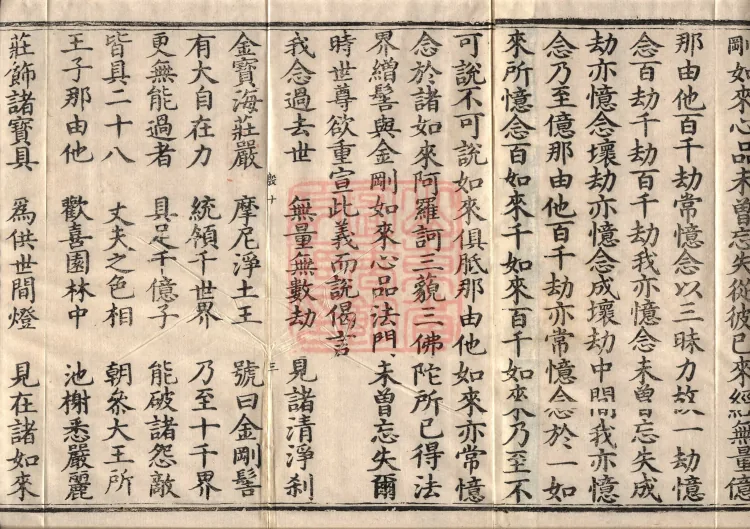 剛如來心品未曽忘失從彼已來經無量億
那由他百千劫常憶念以三昧力故一劫憶
念百劫千劫百千劫我亦憶念未曽忘失成
劫亦憶念壞劫亦憶念成壞劫中間我亦憶
念乃至億那由他百千劫亦常憶念於一如
來所憶念百如來千如來百千如來乃至不
可說不可說如來俱胝那由他如來亦常憶
念於諸如來阿羅訶三藐三佛陀所已得法
界繒髻與金剛如來心品法門未曽忘失爾
時世尊欲重宣此義而說偈言
我念過去世　無量無數劫　見諸清淨刹
殷十　三
金寶海莊嚴　摩尼淨土王　號曰金剛髻
有大自在力　統領千世界　乃至十千界
更無能過者　具足千億子　能破諸怨敵
皆具二十八　丈夫之色相　朝叅大王所
王子那由他　歡喜園林中　池榭悉嚴麗
莊飾諸寶具　爲供世間燈　見在諸如來